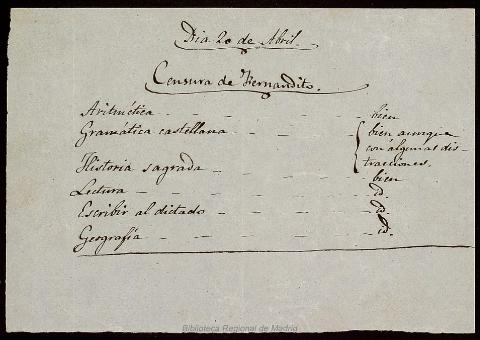 Dia 20 de Abril.
Censura de Fernandito.
Aritmética - - - - - - bien
Gramática castellana - - - - { bien aunque
con algunas dis-
tracciones.
Historia sagrada - - - - - bien
Lectura - - - - - - id.
Escribir al dictado - - - - - id.
Geografía - - - - - - id.
Biblioteca Regional de Madrid